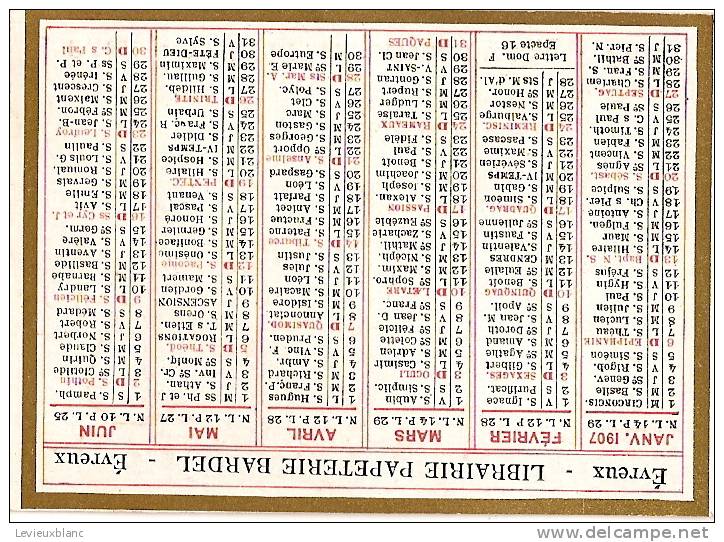 Évreux - LIBRAIRIE PAPETERIE BARDEL - Évreux
JANV. 1907
N. L. 14 P. L. 29
1 M CIRCONCIS.
2 M S. Basile
3 J Se Genev.
4 V S. Rigob.
5 S S. Siméon
6 D EPIPHANIE
7 L S. Théau
8 M S. Lucien
9 M S. Julien
10 J S. Paul
11 V S. Hygin
12 S S. Fréjus
13 D Bapt. N. S.
14 L S. Hilaire
15 M S. Maur
16 M S. Fulgen.
17 J S. Antoine
18 V Ch. s Pier.
19 S S. Sulpice
20 D S. Sébast.
21 L Se Agnès
22 M S. Vincent
23 M S. Fabien
24 J S. Timoth.
25 V C. s Paul
26 S Se Paule
27 D SEPTUAG.
28 L S. Charlem.
29 M S. Fran. S.
30 M Se Bathil.
31 J S. Pier. N.
FÉVRIER
N. L. 12 P. L. 28
1 V S. Ignace
2 S Purificat.
3 D SEXAGÉS.
4 L S. Gilbert
5 M Se Agathe
6 M S. Amand
7 J Se Doroth.
8 V S. Jean M.
9 S Se Apoll.
10 D QUINQUAG
11 L S. Benoit
12 M Se Eulalie
13 M CENDRES
14 J S. Valentin
15 V S. Faustin
16 S Se Julienne
17 D QUADRAG.
18 L S. Siméon
19 M S. Gabin
20 M IV-TEMPS
21 J S. Séverien
22 V Se Isabelle
23 S S. Pascase
24 D REMINISC.
25 L S. Valburge
26 M S. Nestor
27 M Se Honor.
28 J Sts M. d'Al.
Lettre Dom. F
Epacte 16
MARS
N. L. 14 P. L. 29
1 V S. Aubin
2 S S. Simplic.
3 D OCULI
4 L S. Casimir
5 M S. Adrien
6 M Se Colette
7 J Se Félicie
8 V S. Jean D.
9 S Se Franç.
10 D LÆTARE
11 L Se Sophro.
12 M S. Maxim.
13 M S. Nicéph.
14 J Se Mathil.
15 V S. Zacharie
16 S Se Euzébie
17 D PASSION
18 L S. Alexan.
19 M S. Joseph
20 M S. Joachim
21 J S. Benoit
22 V S. Paul
23 S S. Fidèle
24 D RAMEAUX
25 L S. Taraise
26 M S. Ludger
27 M S. Rupert
28 J S. Gontran
29 V V.-SAINT
30 S S. Jean Cl.
31 D PAQUES
AVRIL
N. L. 12 P. L. 28
1 L S. Hugues
2 M S. Franç.-P
3 M S. Richard
4 J S. Ambr.
5 V S. Vinc. F.
6 S S. Pruden.
7 D QUASIMOD.
8 L Annonciat
9 M S. Isidore
10 M S. Macaire
11 J S. Léon
12 V S. Jules
13 S S. Justin
14 D S. Tiburce
15 L S. Paterne
16 M S. Fructue
17 M S. Anicet
18 J S. Parfait
19 V S. Léon I.
20 S S. Gaspard
21 D S. Anselme
22 L Se Opport
23 M S. Georges
24 M S. Gaston
25 J S. Marc
26 V S. Clet
27 S S. Polyc.
28 D Sts Mar. A
29 L Se Marie E.
30 M S. Eutrope
MAI
N. L. 12 P. L. 27
1 M Ss Ph. et J
2 J S. Athan.
3 V Inv. Se Cr.
4 S Se Moniq.
5 D S. Théod.
6 L ROGATIONS
7 M T. s Etien.
8 M S. Orens
9 J ASCENSION
10 V S. Gordien
11 S S. Mamert
12 D S. Pacome
13 L S. Onésime
14 M S. Boniface
15 M S. Gernier
16 J S. Honoré
17 V S. Pascal
18 S S. Venant
19 D PENTEC.
20 L S. Hilaire
21 M S. Hospice
22 M IV-TEMPS
23 J S. Didier
24 V S. Franç. R
25 S S. Urbain
26 D TRINITÉ
27 L S. Hildeb.
28 M S. Guillau.
29 M S. Maximin
30 J FÊTE-DIEU
31 V S. Sylve
JUIN
N. L. 10 P. L. 25
1 S S. Pamph.
2 D S. Pothin
3 L Se Clotilde
4 M S. Quirin
5 M S. Claude
6 J S. Norbert
7 V S. Robert
8 S S. Médard
9 D S. Félicien
10 L S. Landry
11 M S. Barnabé
12 M S. Basilide
13 J S. Aventin
14 V S. Valère
15 S Se Germ.
16 D Ss Cyr et J.
17 L S. Avit
18 M S. Emile
19 M S. Gervais
20 J S. Romual.
21 V S. Louis G.
22 S S. Paulin
23 D S. Leufroy
24 L S. Jean-B.
25 M Se Fébron.
26 M S. Maixent
27 J S. Crescent
28 V S. Irénée
29 S Ss P. et P.
30 D C. s Paul
Levieuxblanc
delcampe.net